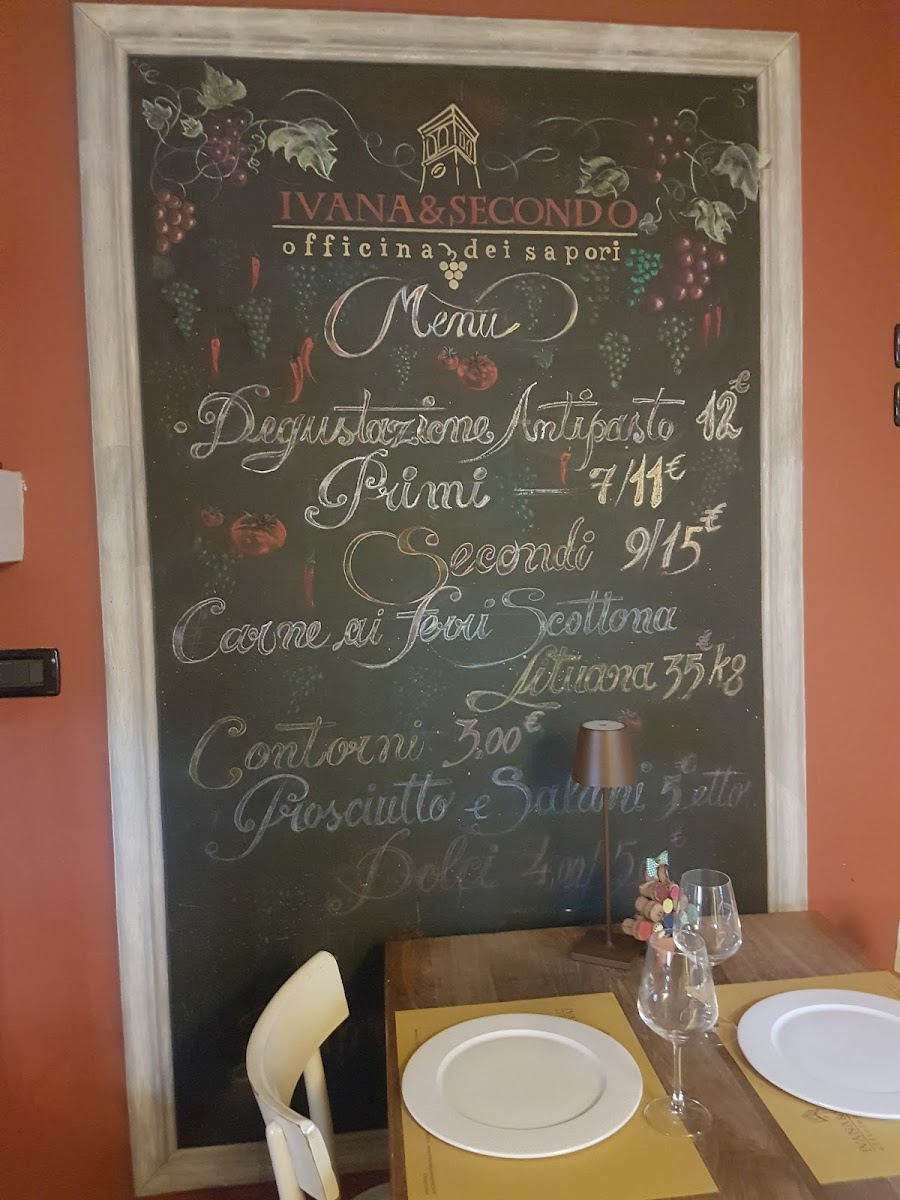 IVANA&SECONDO
officina dei sapori
Menù
Degustazione Antipasto 12€
Primi — 7/11€
Secondi 9/15€
Carne ai Ferri Scottona
Lituana 35€ kg
Contorni 3,00€
Prosciutto e Salumi 5€ etto
Dolci 4,00/5,00€
IVANA&